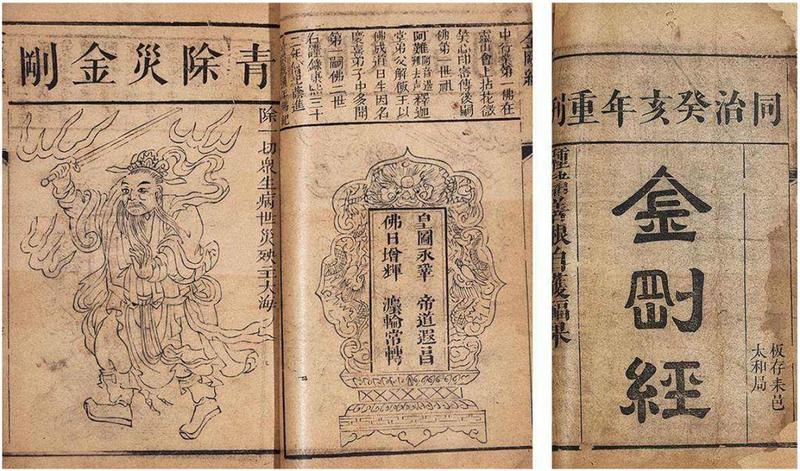 同治癸亥年重刊
金剛經
板存耒邑
太和局
善根自獲福果
金剛經
中行業第一佛在
靈山會上拈花微
笑心印密傳後嗣
佛第一世祖
阿難 釋迦
堂弟父斛飯王以
佛成道日生因名
慶喜弟子中多聞
第一嗣佛二世
右謹錄康熙三十
二年
皇圖永鞏 帝道遐昌
佛日增輝 灋輪常轉
青除災金剛
除一切衆生病世災殃至大海